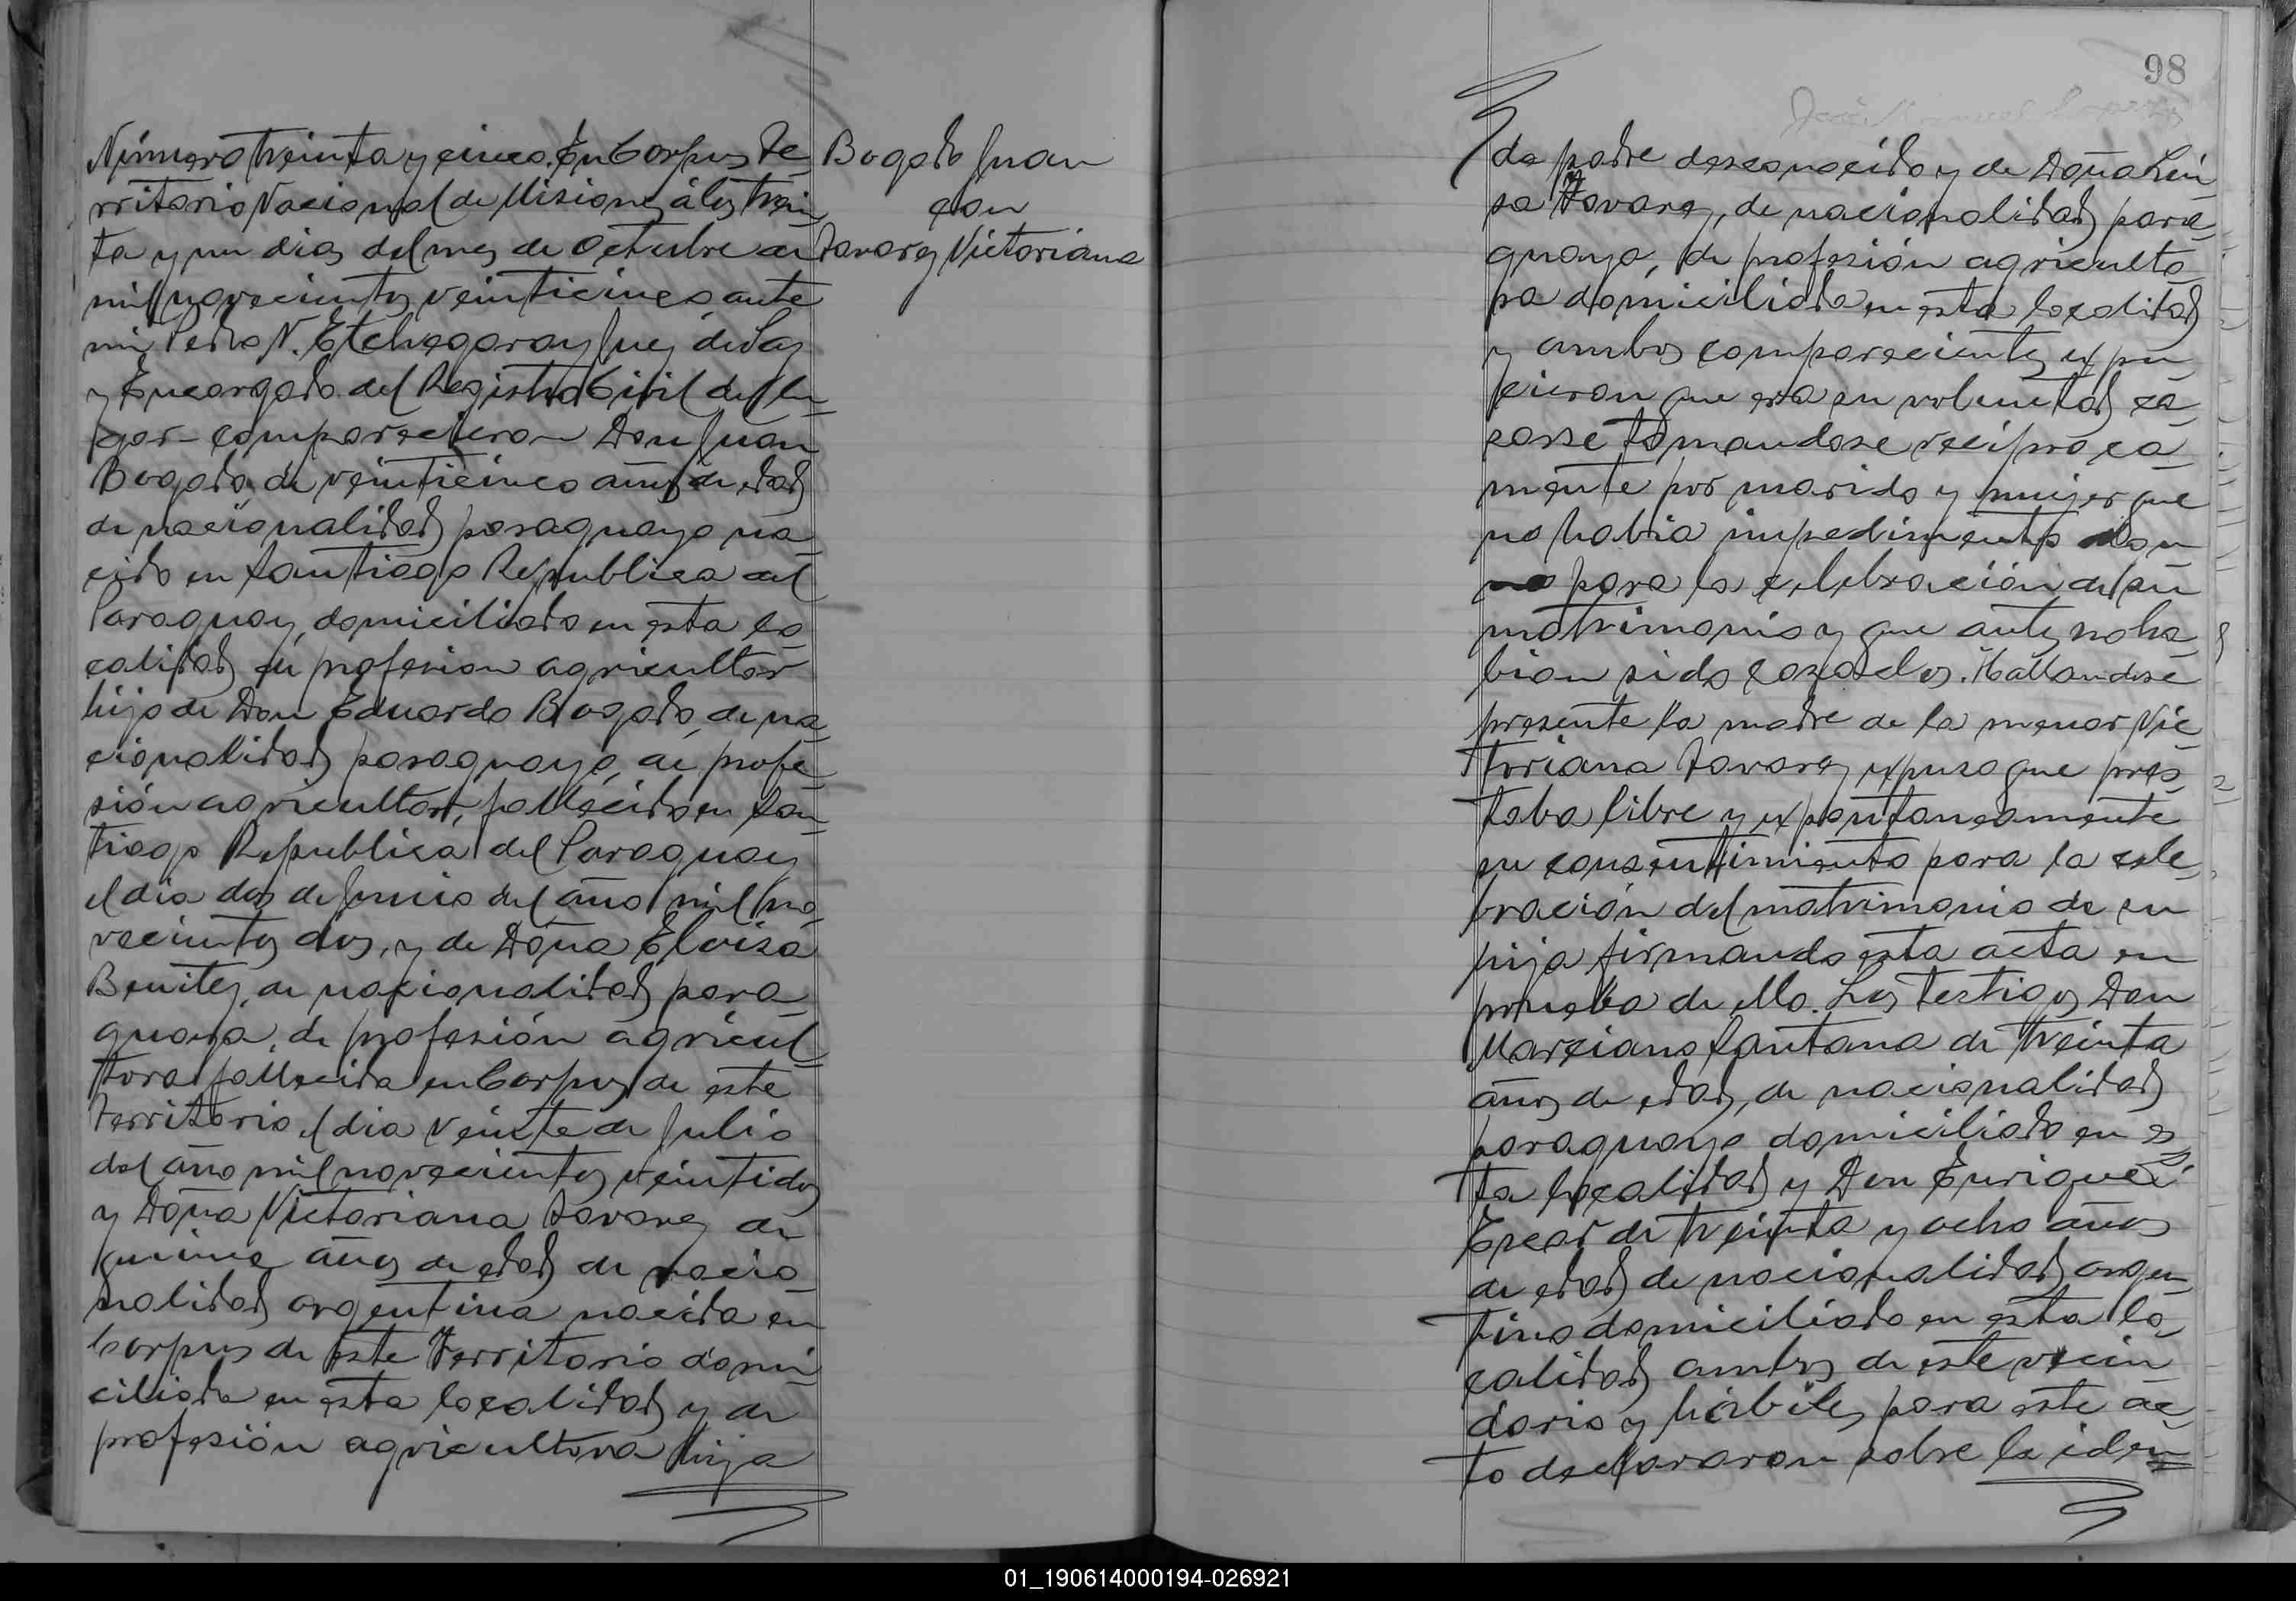 Número treinta y cinco. En Corpus Te
rritorio Nacional de Misiones á los trein
ta y un dias del mes de Octubre de
mil novecientos veinticinco, ante
mi Pedro N. Etchegaray Juez de Paz
y Encargado del Registro Civil del lu
gar comparecieron Don Juan
Bogado, de veinticinco años de edad
de nacionalidad paraguayo na
cido en Santiago Republica del
Paraguay, domiciliado en esta lo
calidad de profesion agricultor
hijo de Don Eduardo Bogado, de na
cionalidad paraguayo, de profe
sión agricultor, fallecido en San
tiago Republica del Paraguay
el dia dos de Junio del año mil no
vecientos dos, y de Doña Eloisa
Benitez, de nacionalidad para
guaya, de profesión agricul
tora fallecida en Corpus de este
Territorio el dia veinte de Julio
del año mil novecientos veintidos
y Doña Victoriana Tavarez de
quince años de edad de nacio
nalidad argentina nacida en
Corpus de este Territorio domi
ciliada en esta localidad y de
profesión agricultora hija
Bogado Juan
con
Tavarez Victoriana
98
de padre desconocido y de Doña
Tavarez, de nacionalidad para
guaya, de profesión agriculto
ra domiciliada en esta localidad
y ambos comparecientes expu
sieron que era su voluntad ca
sarse tomandose reciproca
mente por marido y mujer que
no habia impedimento
para la celebración del su
matrimonio y que antes no ha
bian sido casados. Hallandose
presente la madre de la menor Vic
toriana Tavarez expuso que pres
taba libre y expontaneamente
su consentimiento para la cele
bración del matrimonio de su
hija firmando esta acta en
prueba de ello. Los testigos Don
Marciano Santana de treinta
años de edad, de nacionalidad
paraguayo domiciliado en es
ta localidad y Don Enrique
de treinta y ocho años
de edad de nacionalidad argen
tino domiciliado en esta lo
calidad ambos de este vecin
dario y hábiles para este ac
to declararon sobre la iden
01_190614000194-026921